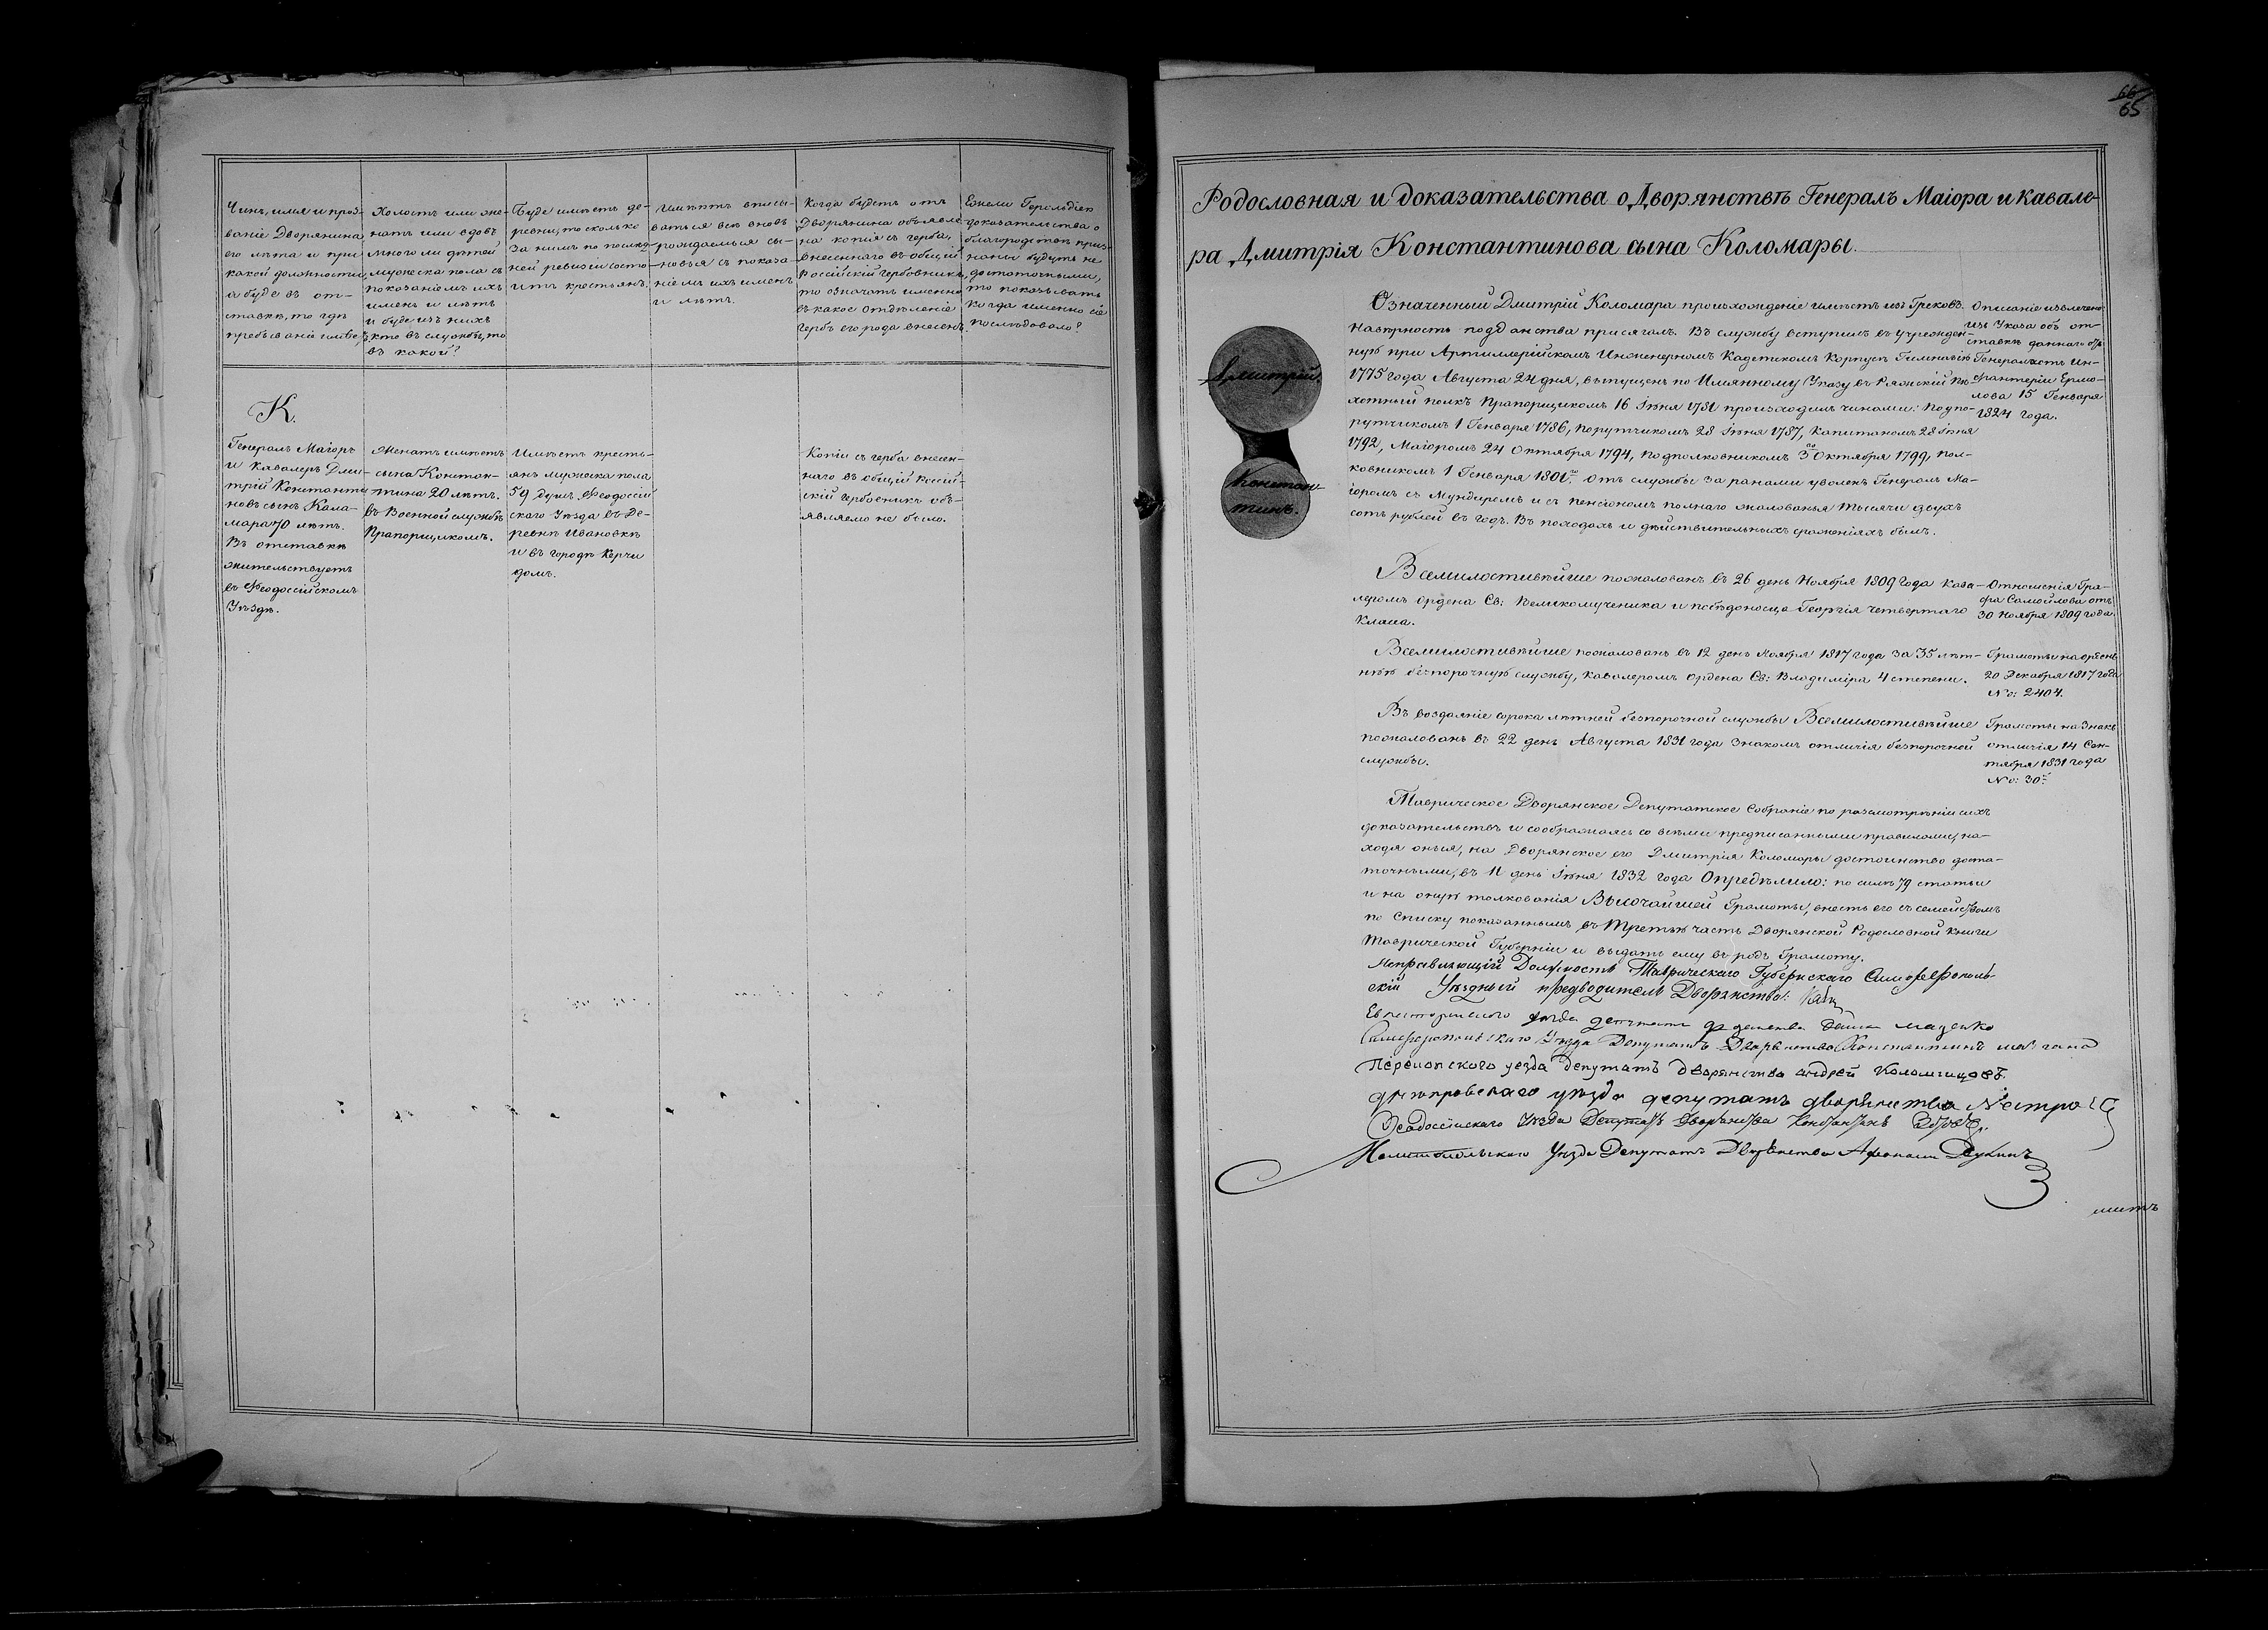 Чинъ, имя и проз-
ваніе Дворянина
его лѣта и при
какой должности,
а буде въ от-
ставкѣ, то гдѣ
пребываніе имѣетъ,
Холостъ или же-
натъ или вдовъ
много ли дѣтей
мужеска пола съ
показаніемъ ихъ
именъ и лѣтъ
и буде изъ нихъ
кто въ службѣ, то
въ какой?
Буде имѣетъ де-
ревни, то сколько
за нимъ по послѣд-
ней ревизіи состо-
итъ крестьянъ.
Имѣютъ вписы-
ваться всѣ вновь
рождаемыя сы-
новья съ показа-
ніемъ ихъ именъ
и лѣтъ.
Когда будетъ отъ
Дворянина объявле-
на копія съ герба,
внесеннаго въ общій
Россійскій гербовникъ,
то означать именно
въ какое отдѣленіе
гербъ его рода внесенъ.
Ежели Герольдіею
доказательства о
благородствѣ приз-
наны будутъ не
достаточными,
то показывать
когда именно сіе
послѣдовало?
К.
Генералъ Маіоръ
и Кавалеръ Дми-
трій Константи-
новъ сынъ Кала-
мара 70 лѣтъ.
Въ отставкѣ
жительствуетъ
въ Феодосійскомъ
Уѣздѣ.
Женатъ имѣетъ
сына Констан-
тина 20 лѣтъ.
въ Военной службѣ
Прапорщикомъ.
Имѣетъ кресть-
янъ мужеска пола
59 душъ, Феодосій-
скаго Уѣзда въ Де-
ревнѣ Ивановкѣ
и въ городѣ Керчи
домъ.
Копіи съ герба внесен-
наго въ общій Россій-
скій гербовникъ объ-
являемо не было.
66
65
Родословная и доказательства о Дворянствѣ Генералъ Маіора и Кавале-
ра Дмитрія Константинова сына Коломары.
Дмитрій.
Констан-
тинъ.
Означенный Дмитрій Коломара происхожденіе имѣетъ изъ Грековъ.
На вѣрность подданства присягалъ. Въ службу вступилъ въ учрежден-
ную при Артиллерійскомъ Инженерномъ Кадетскомъ Корпусѣ Гимназію
1775 года Августа 24 дня, выпущенъ по Имянному Указу въ Ряжскій Пѣ-
хотный полкъ Прапорщикомъ 16 Іюня 1781 происходилъ чинами: Подпо-
рутчикомъ 1 Генваря 1786, Порутчикомъ 28 Іюня 1787, Капитаномъ 28 Іюня
1792, Маіоромъ 24 Октября 1794, Подполковникомъ 3го Октября 1799, Пол-
ковникомъ 1 Генваря 1801го отъ службы за ранами уволенъ Генералъ Ма-
іоромъ съ Мундиромъ и съ пенсіономъ полнаго жалованья тысячи двухъ
сотъ рублей въ годъ. Въ походахъ и дѣйствительныхъ сраженіяхъ былъ.
Описаніе извлечено
изъ Указа объ от-
ставкѣ даннаго отъ
Генерала отъ Ин-
фантеріи Ермо-
лова 15 Генваря
1824 года.
Всемилостивѣйше пожалованъ въ 26 день Ноября 1809 года Кава-
леромъ ордена Св: Великомученика и побѣдоносца Георгія четвертаго
класса.
Отношенія Гра-
фа Самойлова отъ
30 Ноября 1809 года.
Всемилостивѣйше пожалованъ въ 12 день Ноября 1817 года за 35 лѣт-
нюю безпорочную службу, Кавалеромъ Ордена Св: Владиміра 4 степени.
Грамоты на орденъ
20 Декабря 1817 года
No: 2404.
Въ воздаяніе сорока лѣтней безпорочной службы Всемилостивѣйше
пожалованъ въ 22 день Августа 1831 года Знакомъ отличія безпорочной
службы.
Грамоты на Знакъ
отличія 14 Сен-
тября 1831 года
No: 30.
Таврическое Дворянское Депутатское Собраніе по разсмотрѣніи сихъ
доказательствъ и соображаясь со всѣми предписанными правилами, на-
ходя оныя, на Дворянское его Дмитрія Коломары достоинство доста-
точными, въ 11 день Іюня 1832 года Опредѣлило: по силѣ 79 статьи
и на оную толкованія Высочайшей Грамоты, внесть его съ семействомъ
по Списку показаннымъ въ третью часть Дворянской Родословной книги
Таврической Губерніи и выдать ему въ родъ Грамоту.
Исправляющій Должность Таврическаго Губернскаго Симферополь-
скій Уѣздный предводитель Дворянства:
Евпаторійскаго уѣзда депутатъ
Симферопольскаго Уѣзда Депутатъ Дворянства Константинъ
Перекопскаго уезда депутатъ дворянства андрей Коломійцовъ.
днѣпровскаго уѣзда депутатъ дворянства
Феодосійскаго Уѣзда Депутатъ Дворянства Константинъ
Мелитопольскаго Уѣзда Депутатъ Дворянства
митъ